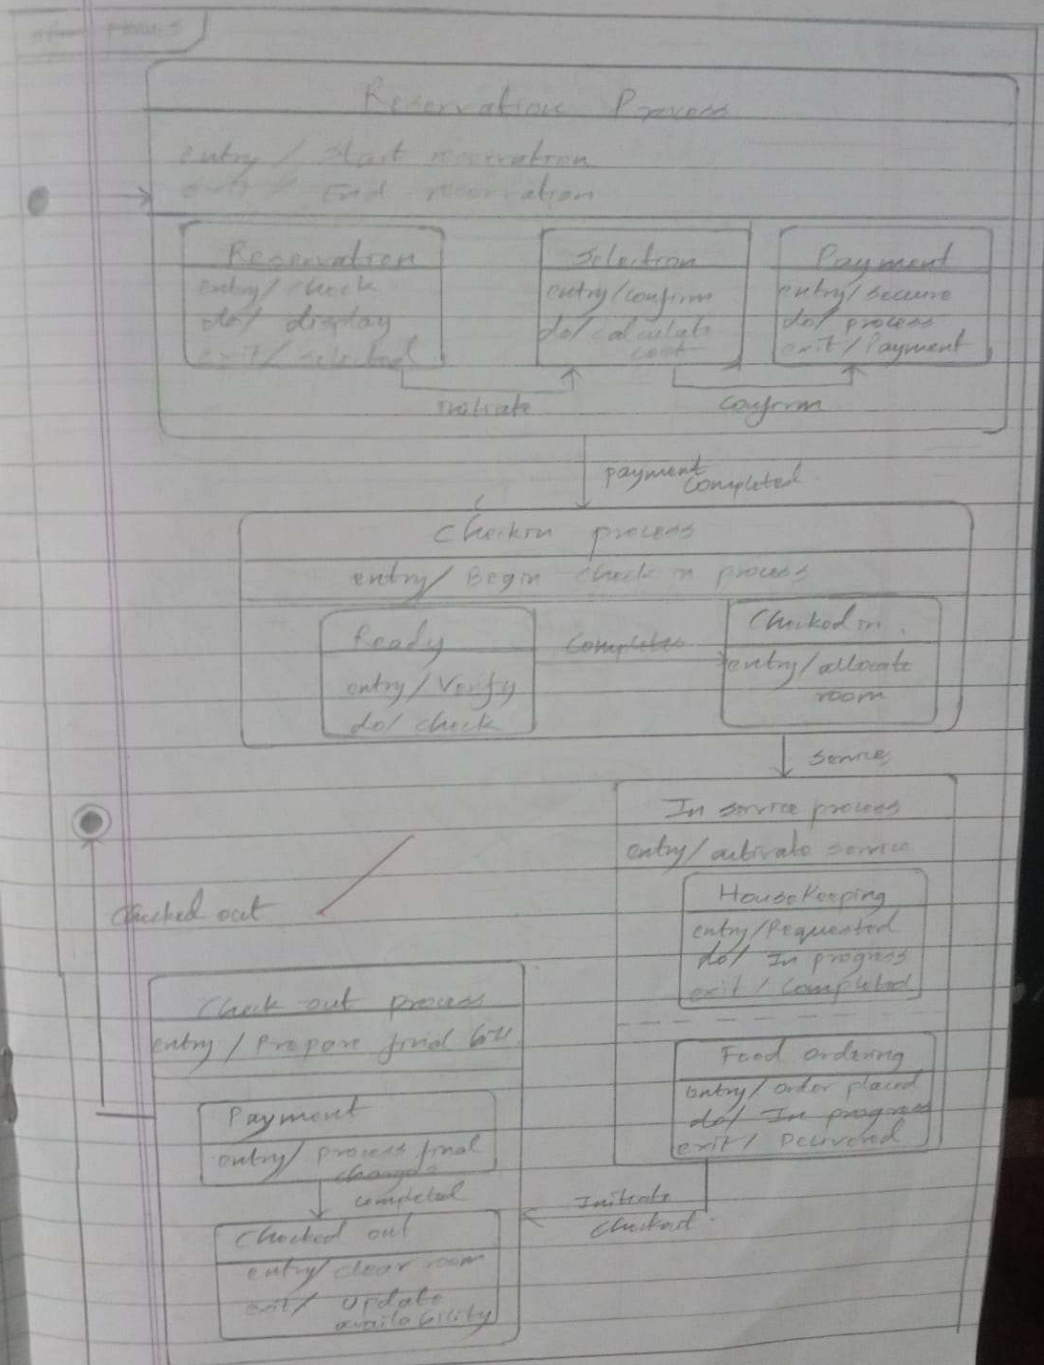 Reservation Process
entry / Start reservation
exit / End reservation
Reservation
entry / check
do/ display
exit / selected
Selection
entry/confirm
do/ calculate
cost
Payment
entry/secure
do/ process
exit / Payment
initiate
confirm
payment
completed
Checkin process
entry/ Begin check in process
Ready
entry / Verify
do/ check
Completes
Checked in
entry/allocate
room
Service
In service process
entry/ activate service
HouseKeeping
entry/Requested
do/ In progress
exit / Completed
Food ordering
entry/ order placed
do/ In progress
exit / Delivered
Checked out
Check out process
entry / Prepare final bill
Payment
entry/ process final
charges
completed
Initiate
checkout
Checked out
entry/ clear room
exit/ update
availability